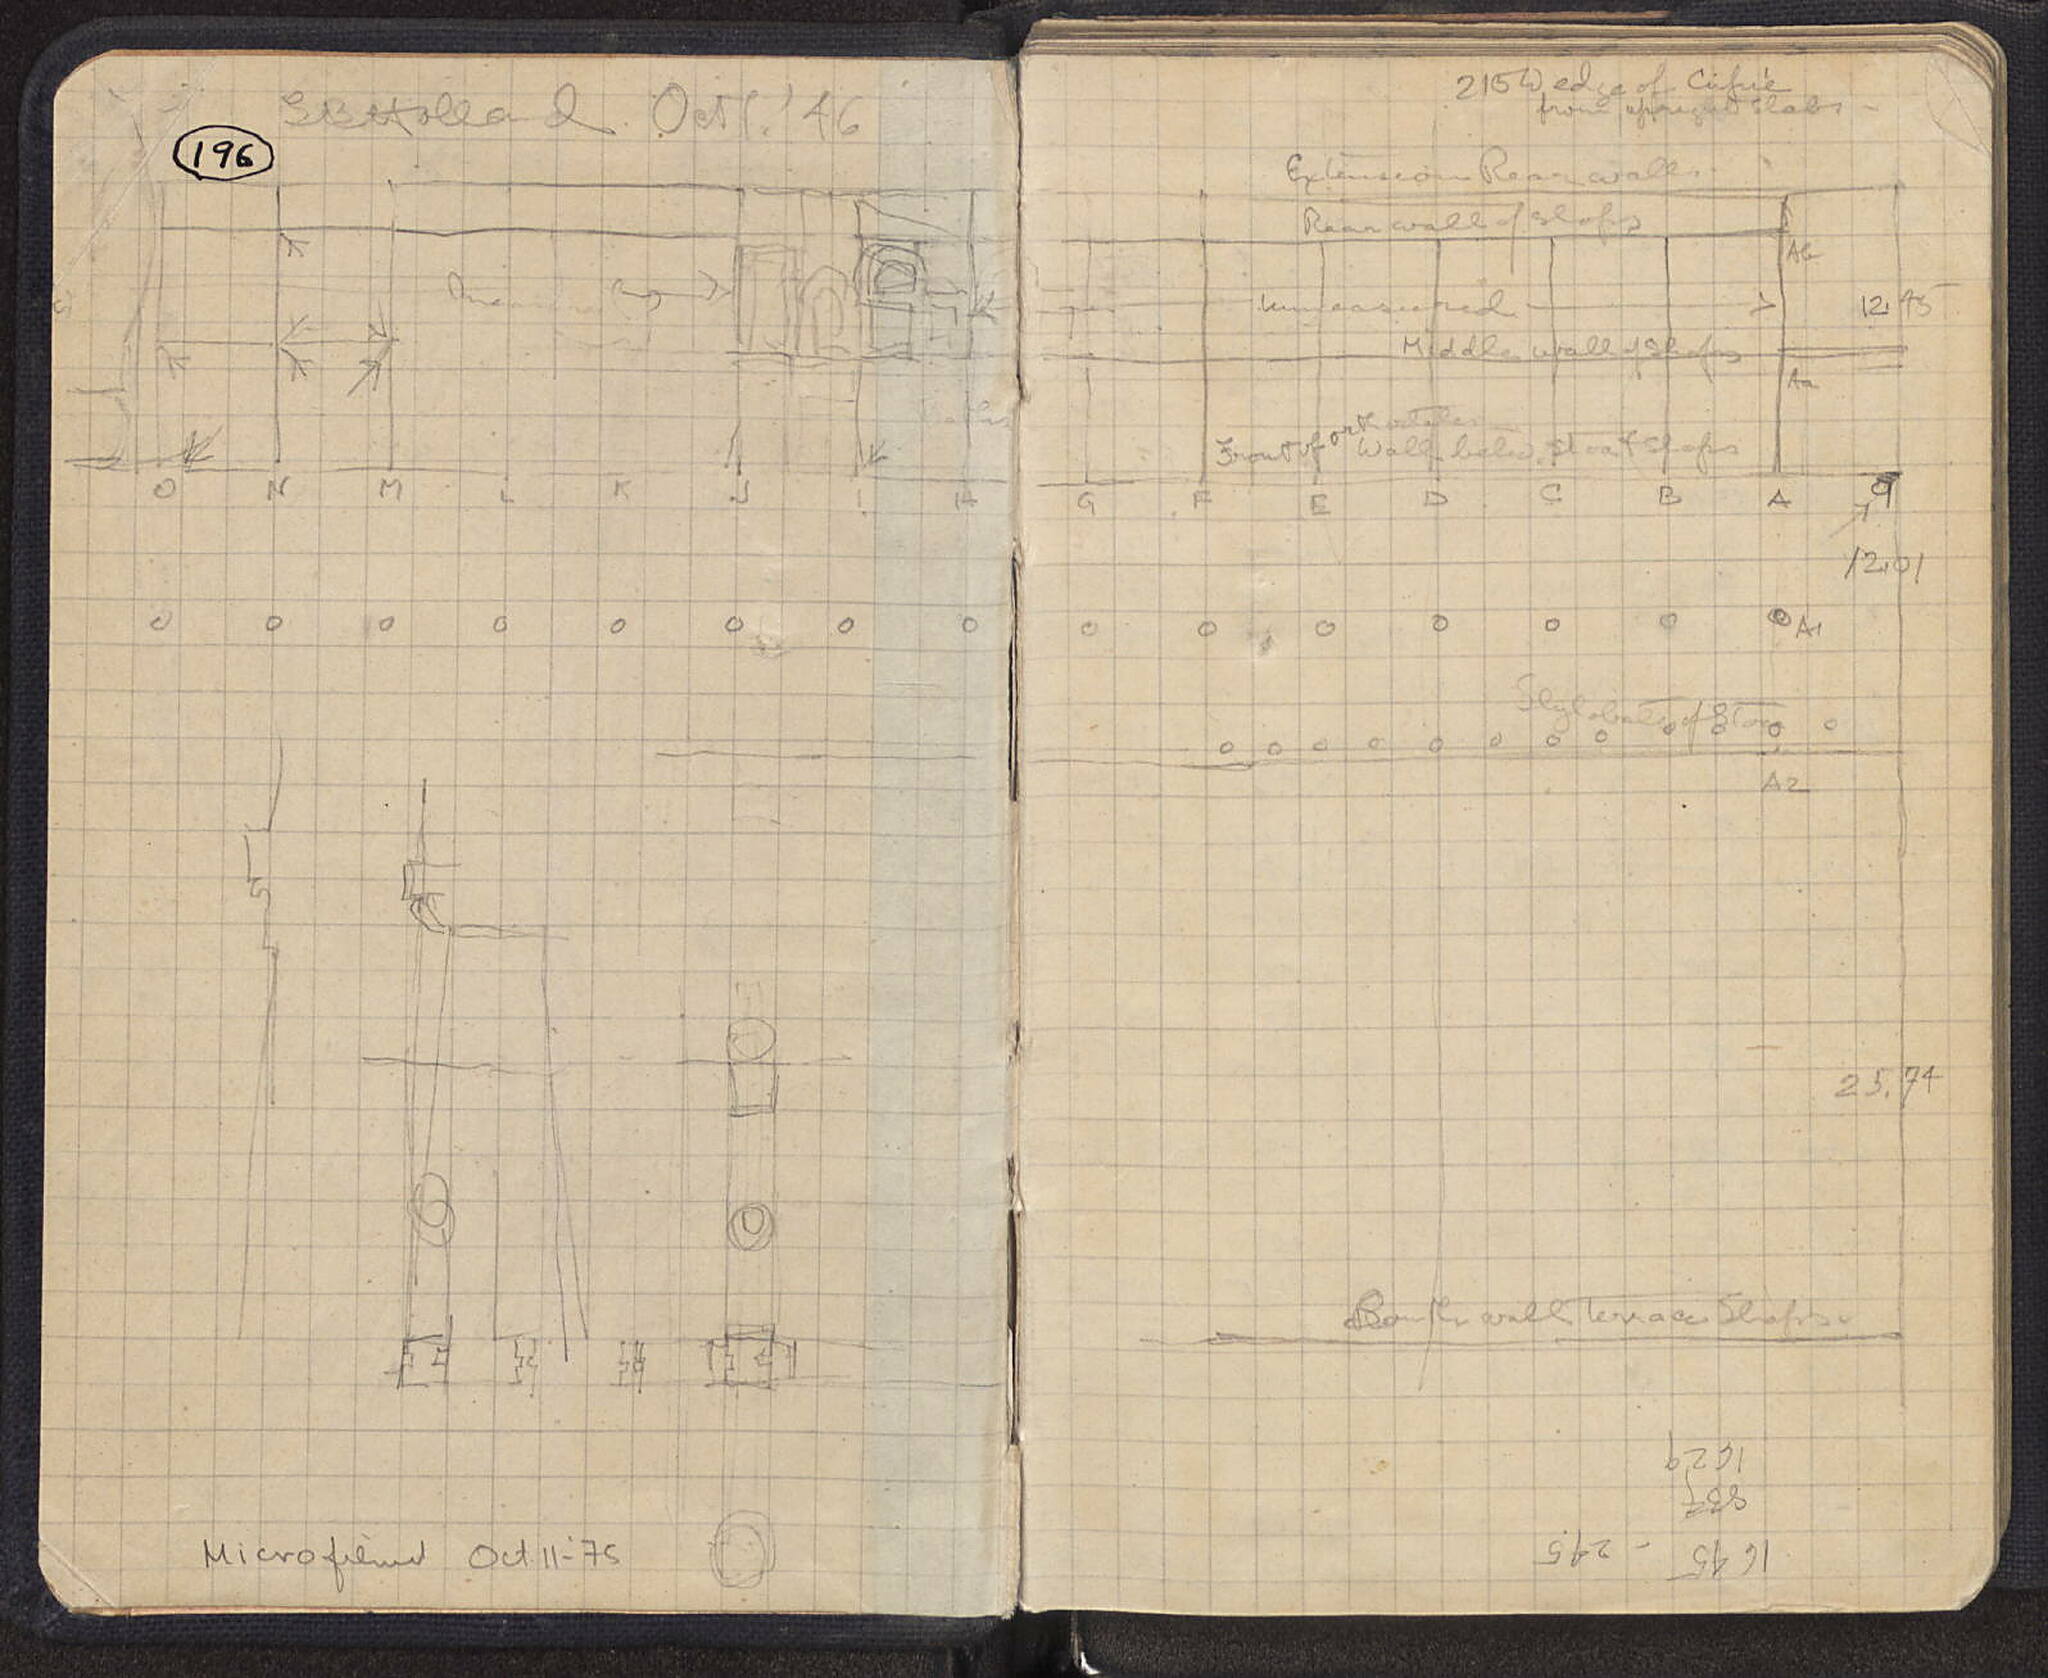 Holland Oct 1. '46
196
O N M L K J I H
Microfilmed Oct 11-'75
215 W edge of
from slabs -
Extension Rear walls.
Rear wall of Shops
Ab
unmeasured
12.45
Middle wall of Shops
Aa
Front of orthostates
Wall below Stoa & Shops
G F E D C B A
12.01
A1
Stylobate of Stoa
A2
25.74
South wall Terrace Shops.
1629
837
1645 - 245